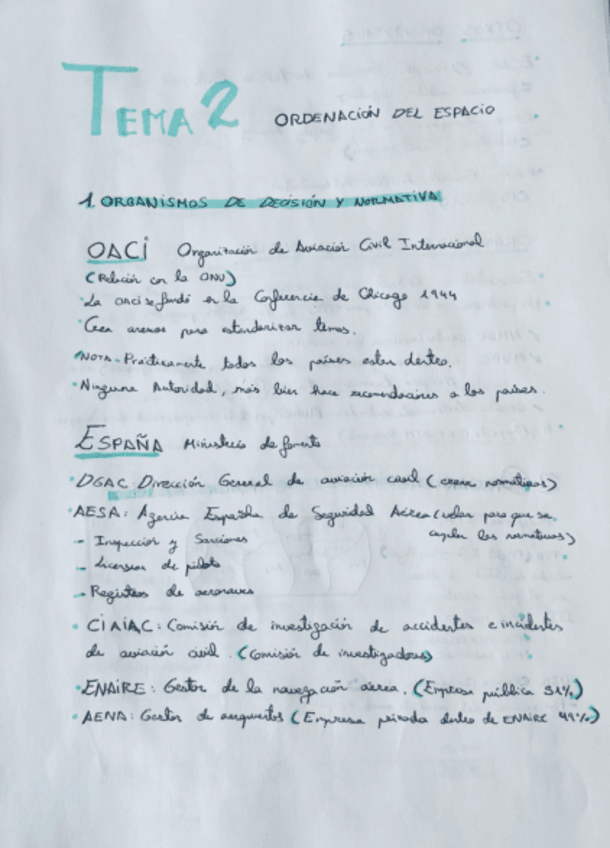 TEMA 2 ORDENACIÓN DEL ESPACIO
1. ORGANISMOS DE DECISIÓN Y NORMATIVA
OACI Organización de Aviación Civil Internacional
(Relación con la ONU)
· La OACI se fundó en la Conferencia de Chicago 1944
· Crea anexos para estandarizar temas.
· NOTA - Prácticamente todos los países estan dentro.
· Ninguna Autoridad, más bien hace recomendaciones a los países.
ESPAÑA Ministerio de fomento
· DGAC Dirección General de aviación civil (crean normativas)
· AESA: Agencia Española de Seguridad Aérea (velar para que se
cumplan las normativas)
- Inspección y Sanciones
- Licencias de piloto
- Registros de aeronaves
· CIAIAC: Comisión de investigación de accidentes e incidentes
de aviación civil. (Comisión de investigadores)
· ENAIRE: Gestor de la navegación aérea. (Empresa pública 51%)
· AENA: Gestor de aeropuertos (Empresa privada dentro de ENAIRE 49%)